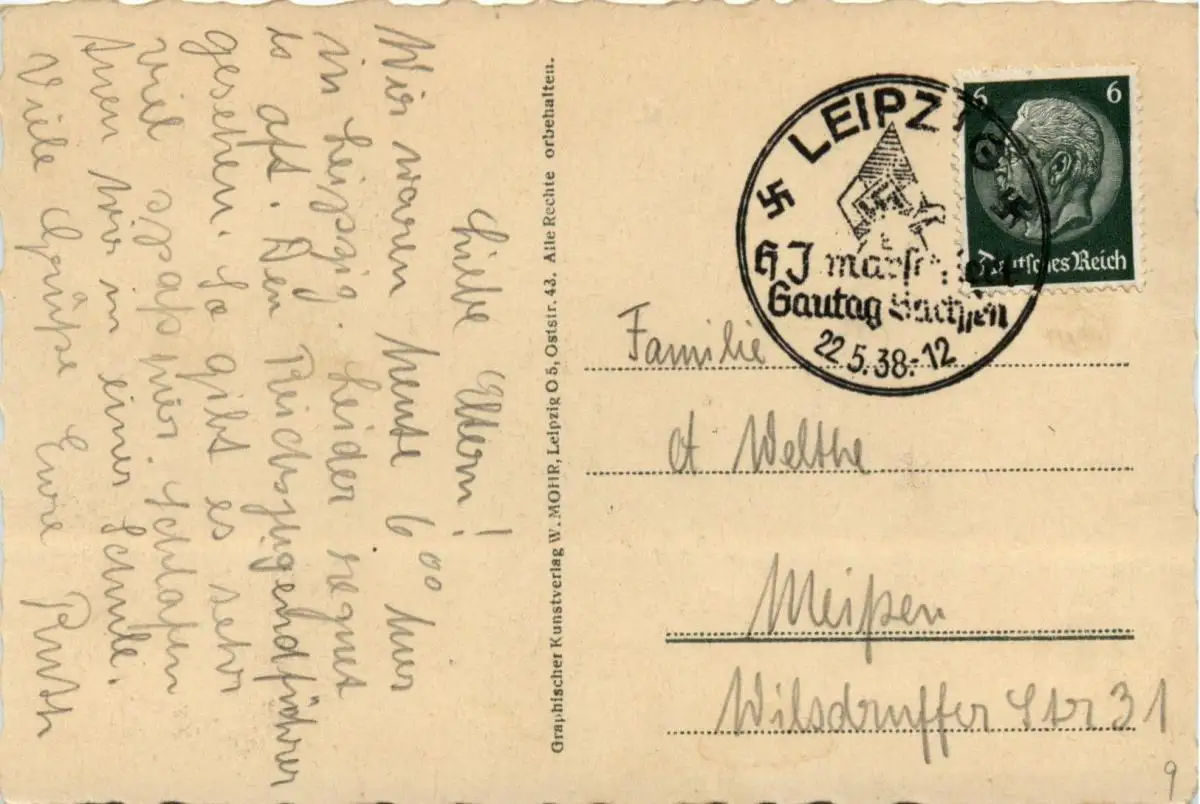 Liebe Eltern!
Wir waren heute 6⁰⁰ hier
in Leipzig. Leider regnet
es oft. Den Reichsjugendführer
gesehen. So gibt es sehr
viel Spaß hier. Schlafen
tuen wir in einer Schule.
Viele Grüße Eure Ruth
Graphischer Kunstverlag W. MOHR, Leipzig O 5, Oststr. 43. Alle Rechte orbehalten.
LEIPZIG
HJ marschiert
Gautag Sachsen
22.5.38.-12
6 6
Deutsches Reich
Familie
A Welthe
Meißen
Wilsdruffer Str 31
9